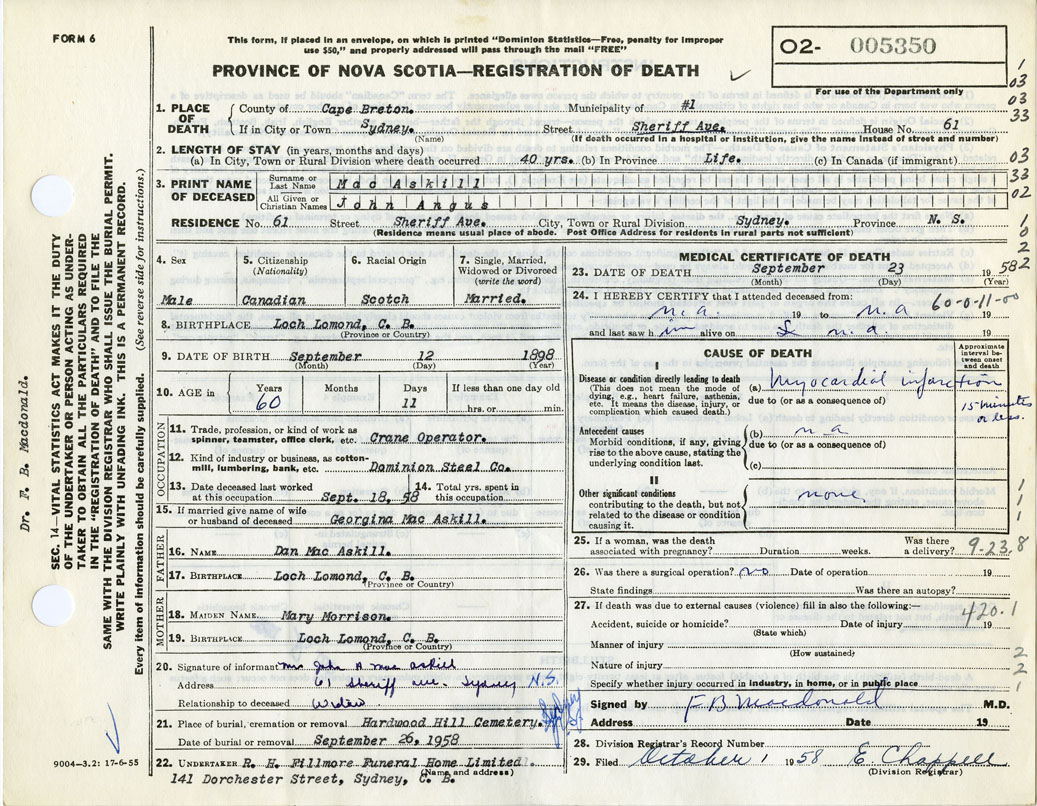 FORM 6
This form, if placed in an envelope, on which is printed "Dominion Statistics—Free, penalty for improper
use $50," and properly addressed will pass through the mail "FREE"
PROVINCE OF NOVA SCOTIA—REGISTRATION OF DEATH
O2- 005350
For use of the Department only
1. PLACE OF DEATH
County of Cape Breton. Municipality of #1
If in City or Town Sydney. Street Sheriff Ave. House No. 61
(Name) (If death occurred in a hospital or institution, give name instead of street and number)
2. LENGTH OF STAY (in years, months and days)
(a) In City, Town or Rural Division where death occurred 40 yrs. (b) In Province Life. (c) In Canada (if immigrant)
3. PRINT NAME OF DECEASED
Surname or Last Name Mac Askill
All Given or Christian Names John Angus
RESIDENCE No. 61 Street Sheriff Ave. City, Town or Rural Division Sydney. Province N. S.
(Residence means usual place of abode. Post Office Address for residents in rural parts not sufficient)
4. Sex
Male
5. Citizenship
(Nationality)
Canadian
6. Racial Origin
Scotch
7. Single, Married,
Widowed or Divorced
(write the word)
Married.
8. BIRTHPLACE Loch Lomond, C. B.
(Province or Country)
9. DATE OF BIRTH September 12 1898
(Month) (Day) (Year)
10. AGE in
Years Months Days If less than one day old
60 11 hrs. or min.
OCCUPATION
11. Trade, profession, or kind of work as
spinner, teamster, office clerk, etc. Crane Operator.
12. Kind of industry or business, as cotton-
mill, lumbering, bank, etc. Dominion Steel Co.
13. Date deceased last worked
at this occupation Sept. 18, 58
14. Total yrs. spent in
this occupation
15. If married give name of wife
or husband of deceased Georgina Mac Askill.
FATHER
16. NAME Dan Mac Askill.
17. BIRTHPLACE Loch Lomond, C. B.
(Province or Country)
MOTHER
18. MAIDEN NAME Mary Morrison.
19. BIRTHPLACE Loch Lomond, C. B.
(Province or Country)
20. Signature of informant Mrs John A Mac Askill
Address 61 Sheriff Ave. Sydney N.S.
Relationship to deceased Widow
21. Place of burial, cremation or removal Hardwood Hill Cemetery.
Date of burial or removal September 26, 1958
22. UNDERTAKER R. H. Fillmore Funeral Home Limited.
(Name and address)
141 Dorchester Street, Sydney, C. B.
9004-3.2: 17-6-55
MEDICAL CERTIFICATE OF DEATH
23. DATE OF DEATH September 23 1958
(Month) (Day) (Year)
24. I HEREBY CERTIFY that I attended deceased from:
60-0-11-00
n.a. 19 to n.a 19
and last saw him alive on n.a. 19
CAUSE OF DEATH
Approximate
interval be-
tween onset
and death
I
Disease or condition directly leading to death
(This does not mean the mode of
dying, e.g., heart failure, asthenia,
etc. It means the disease, injury, or
complication which caused death.)
(a) Myocardial infarction
due to (or as a consequence of)
15 minutes
or less.
Antecedent causes
Morbid conditions, if any, giving
rise to the above cause, stating the
underlying condition last.
(b) n.a
due to (or as a consequence of)
(c)
II
Other significant conditions
contributing to the death, but not
related to the disease or condition
causing it.
none.
25. If a woman, was the death
associated with pregnancy? Duration weeks. Was there
a delivery?
9-23.8
26. Was there a surgical operation? no Date of operation 19
State findings Was there an autopsy?
27. If death was due to external causes (violence) fill in also the following:—
420.1
Accident, suicide or homicide? Date of injury 19
(State which)
Manner of injury
(How sustained)
Nature of injury
Specify whether injury occurred in industry, in home, or in public place
Signed by F B Macdonald M.D.
Address Date 19
28. Division Registrar's Record Number
29. Filed October 1 1958 E. Chappell
(Division Registrar)
1
03
03
33
03
33
02
1
0
2
2
1
1
1
2
2
1
Dr. F. B. Macdonald.
SEC. 14—VITAL STATISTICS ACT MAKES IT THE DUTY
OF THE UNDERTAKER OR PERSON ACTING AS UNDER-
TAKER TO OBTAIN ALL THE PARTICULARS REQUIRED
IN THE "REGISTRATION OF DEATH" AND TO FILE THE
SAME WITH THE DIVISION REGISTRAR WHO SHALL ISSUE THE BURIAL PERMIT.
WRITE PLAINLY WITH UNFADING INK. THIS IS A PERMANENT RECORD.
Every item of information should be carefully supplied. (See reverse side for instructions.)